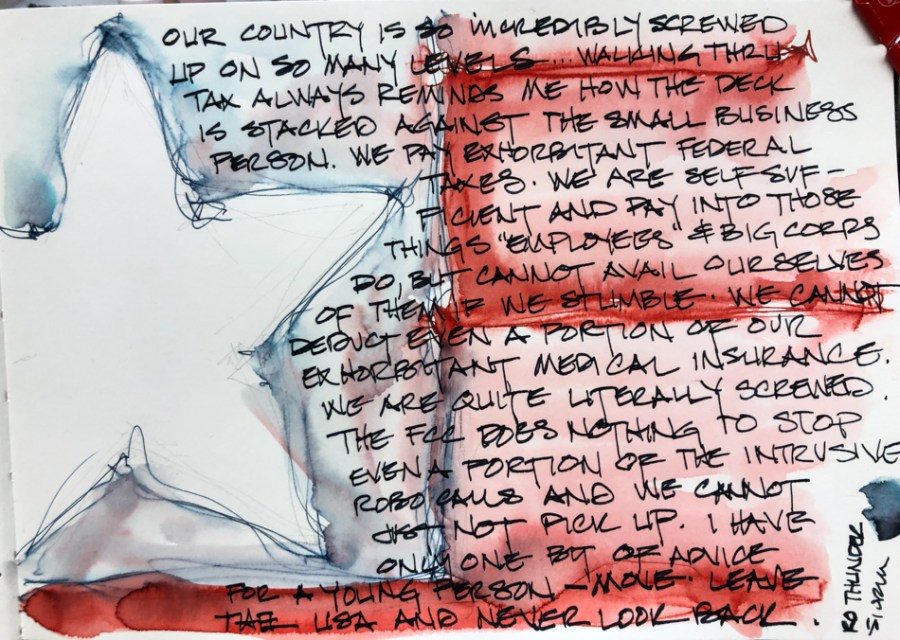 OUR COUNTRY IS SO INCREDIBLY SCREWED
UP ON SO MANY LEVELS... WALKING THRU
TAX ALWAYS REMINDS ME HOW THE DECK
IS STACKED AGAINST THE SMALL BUSINESS
PERSON. WE PAY EXHORBITANT FEDERAL
TAXES. WE ARE SELF SUF-
FICIENT AND PAY INTO THOSE
THINGS "EMPLOYEES" & BIG CORPS
DO, BUT CANNOT AVAIL OURSELVES
OF THEM IF WE STUMBLE. WE CANNOT
DEDUCT EVEN A PORTION OF OUR
EXHORBITANT MEDICAL INSURANCE.
WE ARE QUITE LITERALLY SCREWED.
THE FCC DOES NOTHING TO STOP
EVEN A PORTION OF THE INTRUSIVE
ROBO CALLS AND WE CANNOT
JUST NOT PICK UP. I HAVE
ONLY ONE BIT OF ADVICE
FOR A YOUNG PERSON - MOVE. LEAVE
THE USA AND NEVER LOOK BACK.